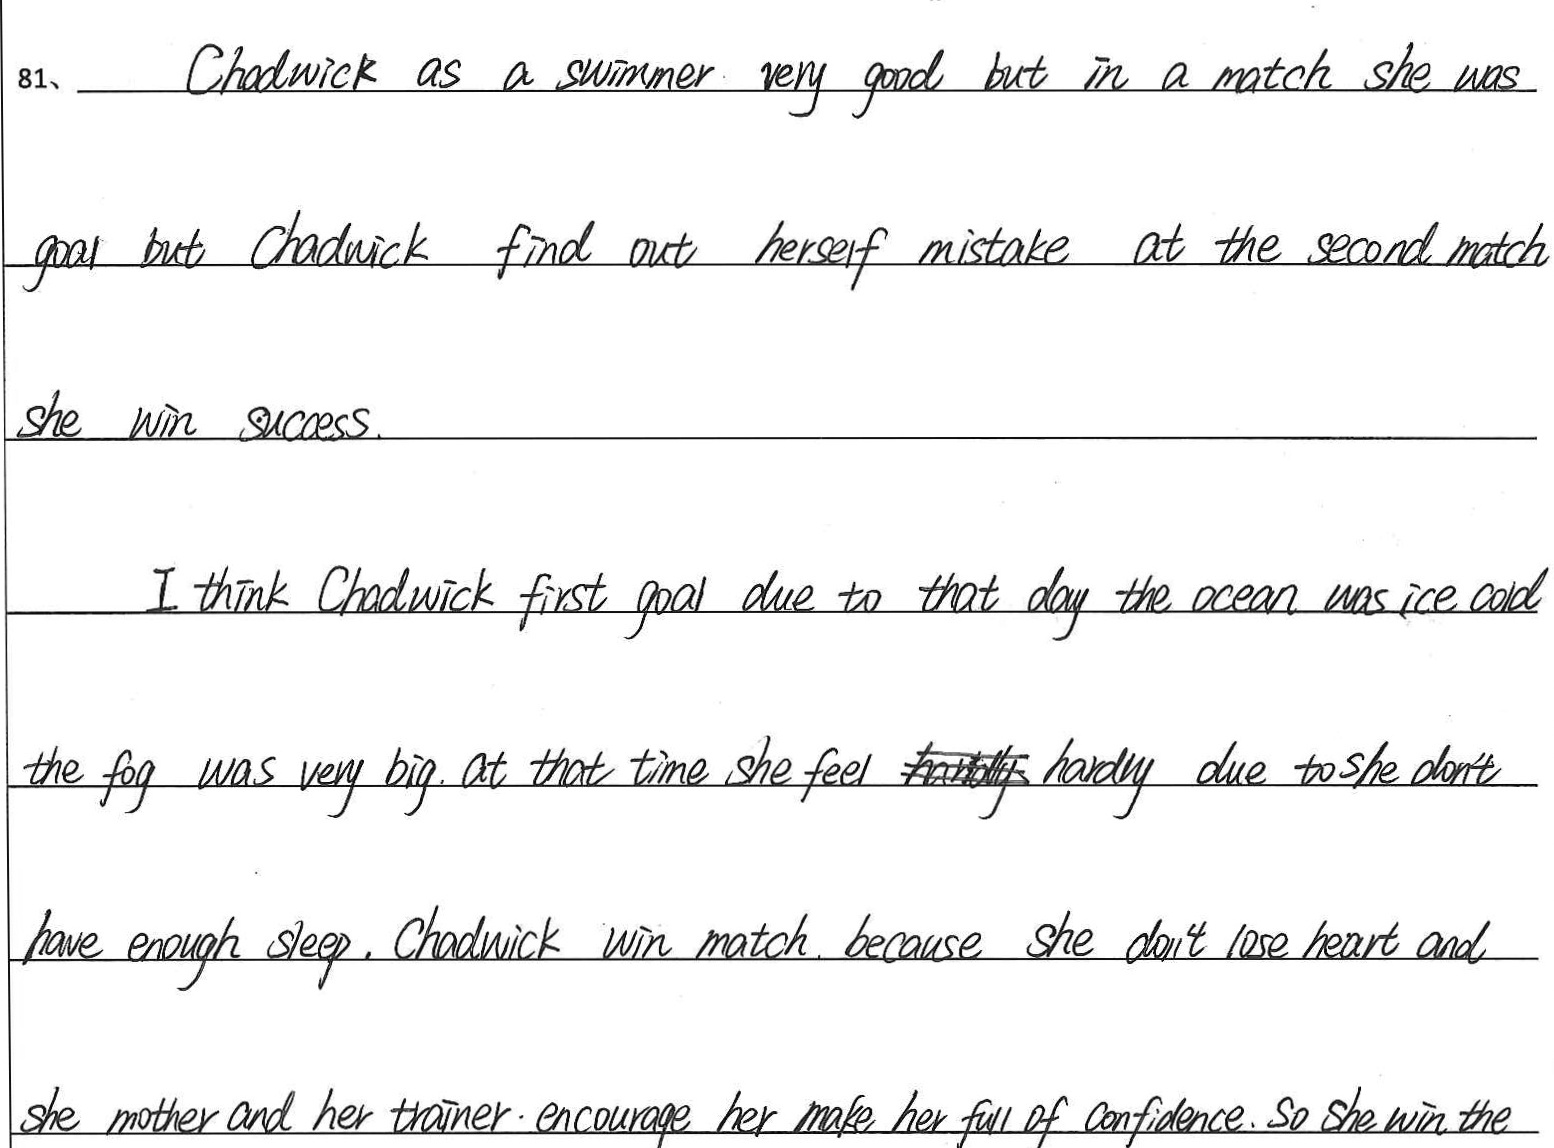 81、 Chadwick as a swimmer very good but in a match she was
goal but Chadwick find out herself mistake at the second match
she win success.
I think Chadwick first goal due to that day the ocean was ice cold
the fog was very big. at that time she feel hardly due to she don't
have enough sleep. Chadwick win match. because she don't lose heart and
she mother and her trainer. encourage her make her full of confidence. So she win the